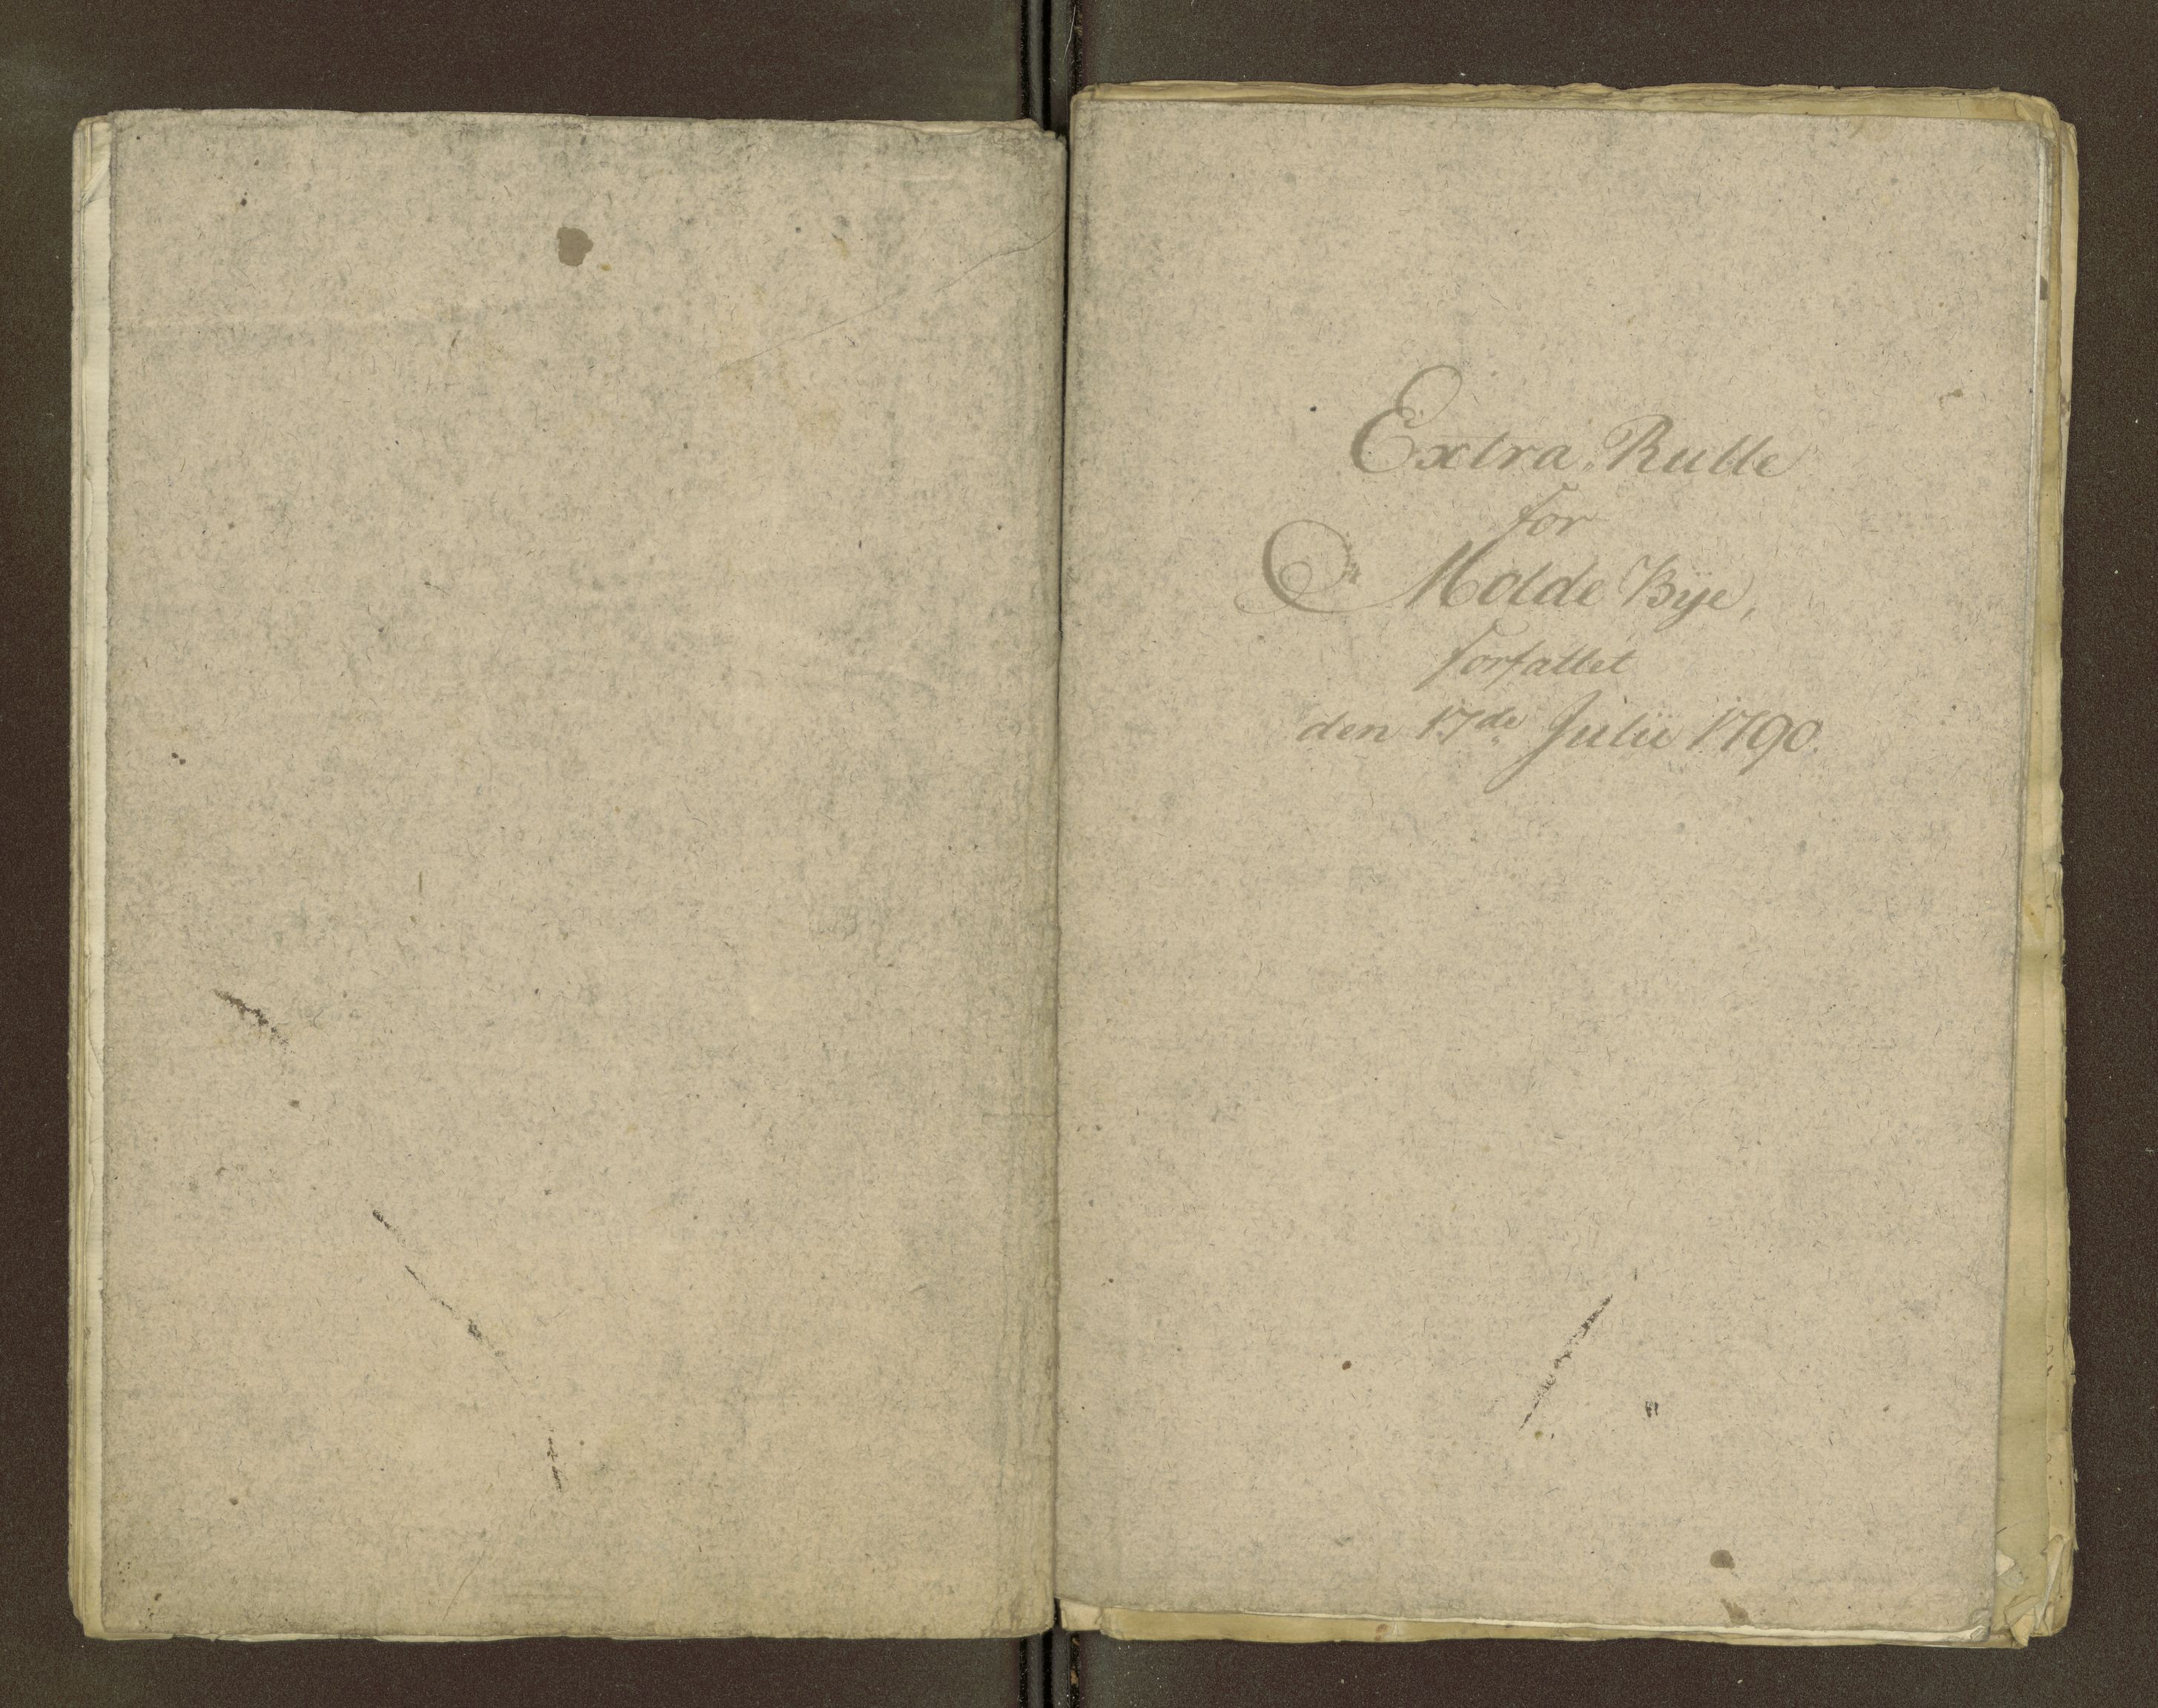 Extra Rulle
for
Molde Bÿe,
forfattet
den 17de Julii 1790.